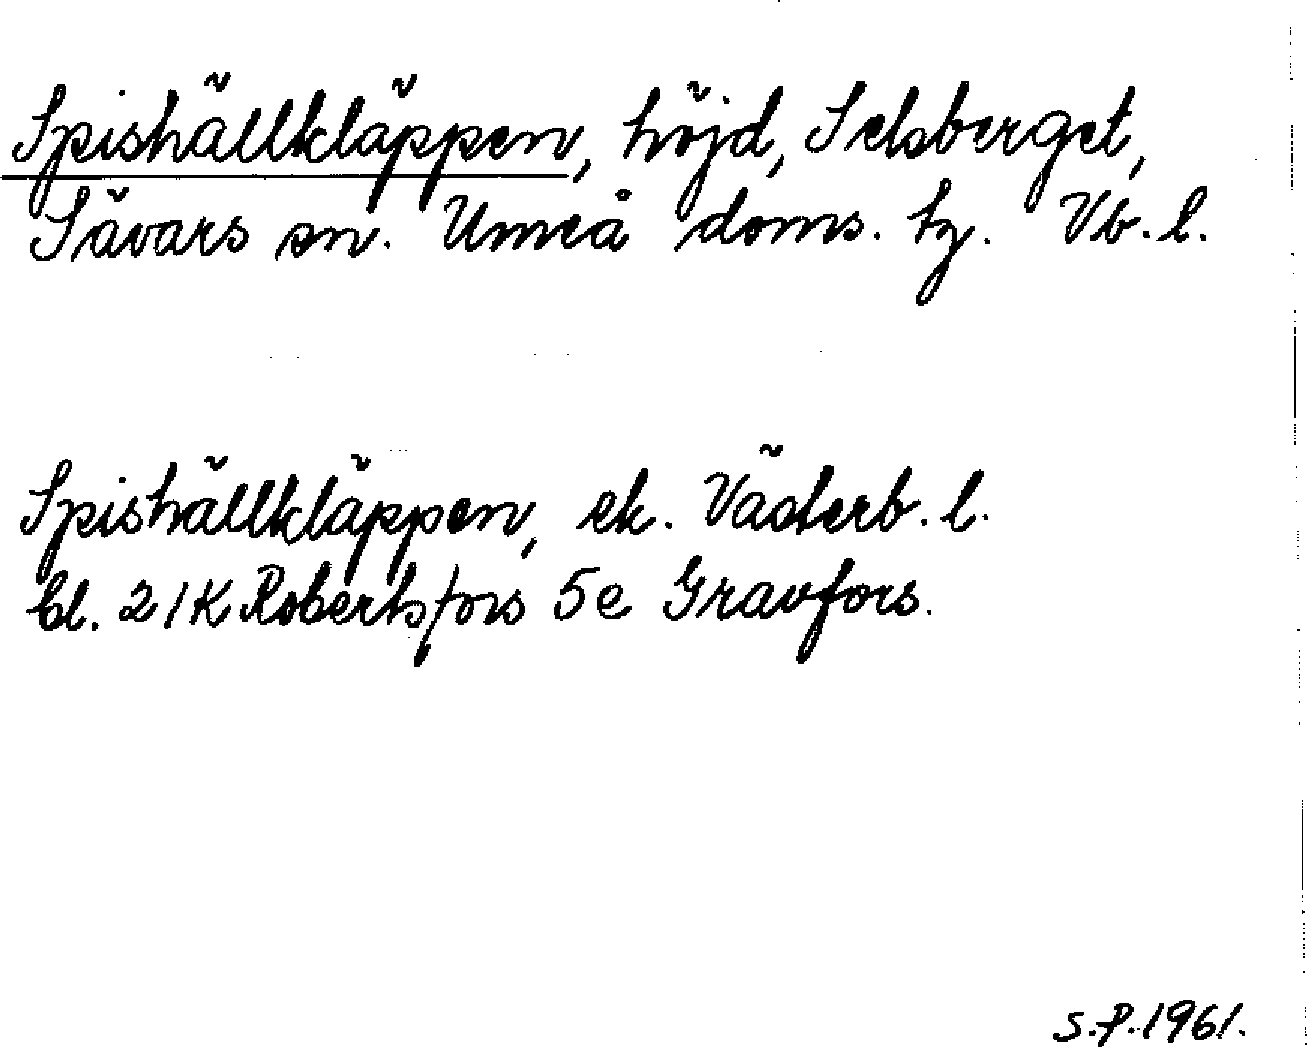 Spishällkläppen, höjd, Selsberget,
Sävars sn. Umeå doms. tg. Vb. l.
Spishällkläppen, ek. Västerb. l.
bl. 21K Robertsfors 5e Gravfors.
S.P. 1961.